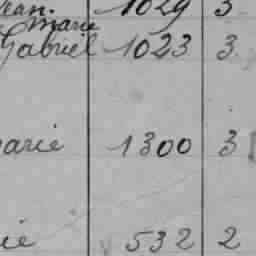 Jean. 1029 3
Marie
Gabriel 1023 3
arie 1300 3
ie 532 2